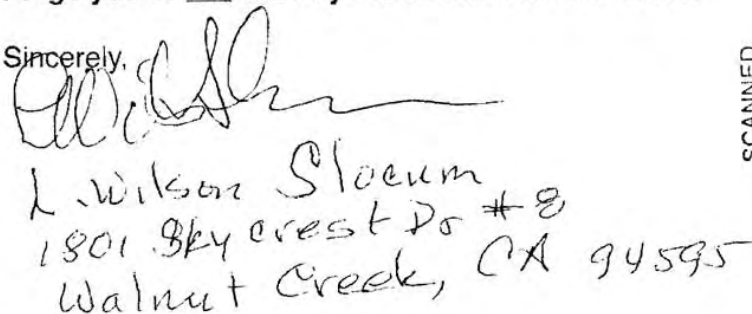 Sincerely,
L. Wilson Slocum
1801 Skycrest Dr #8
Walnut Creek, CA 94595
SCANNED